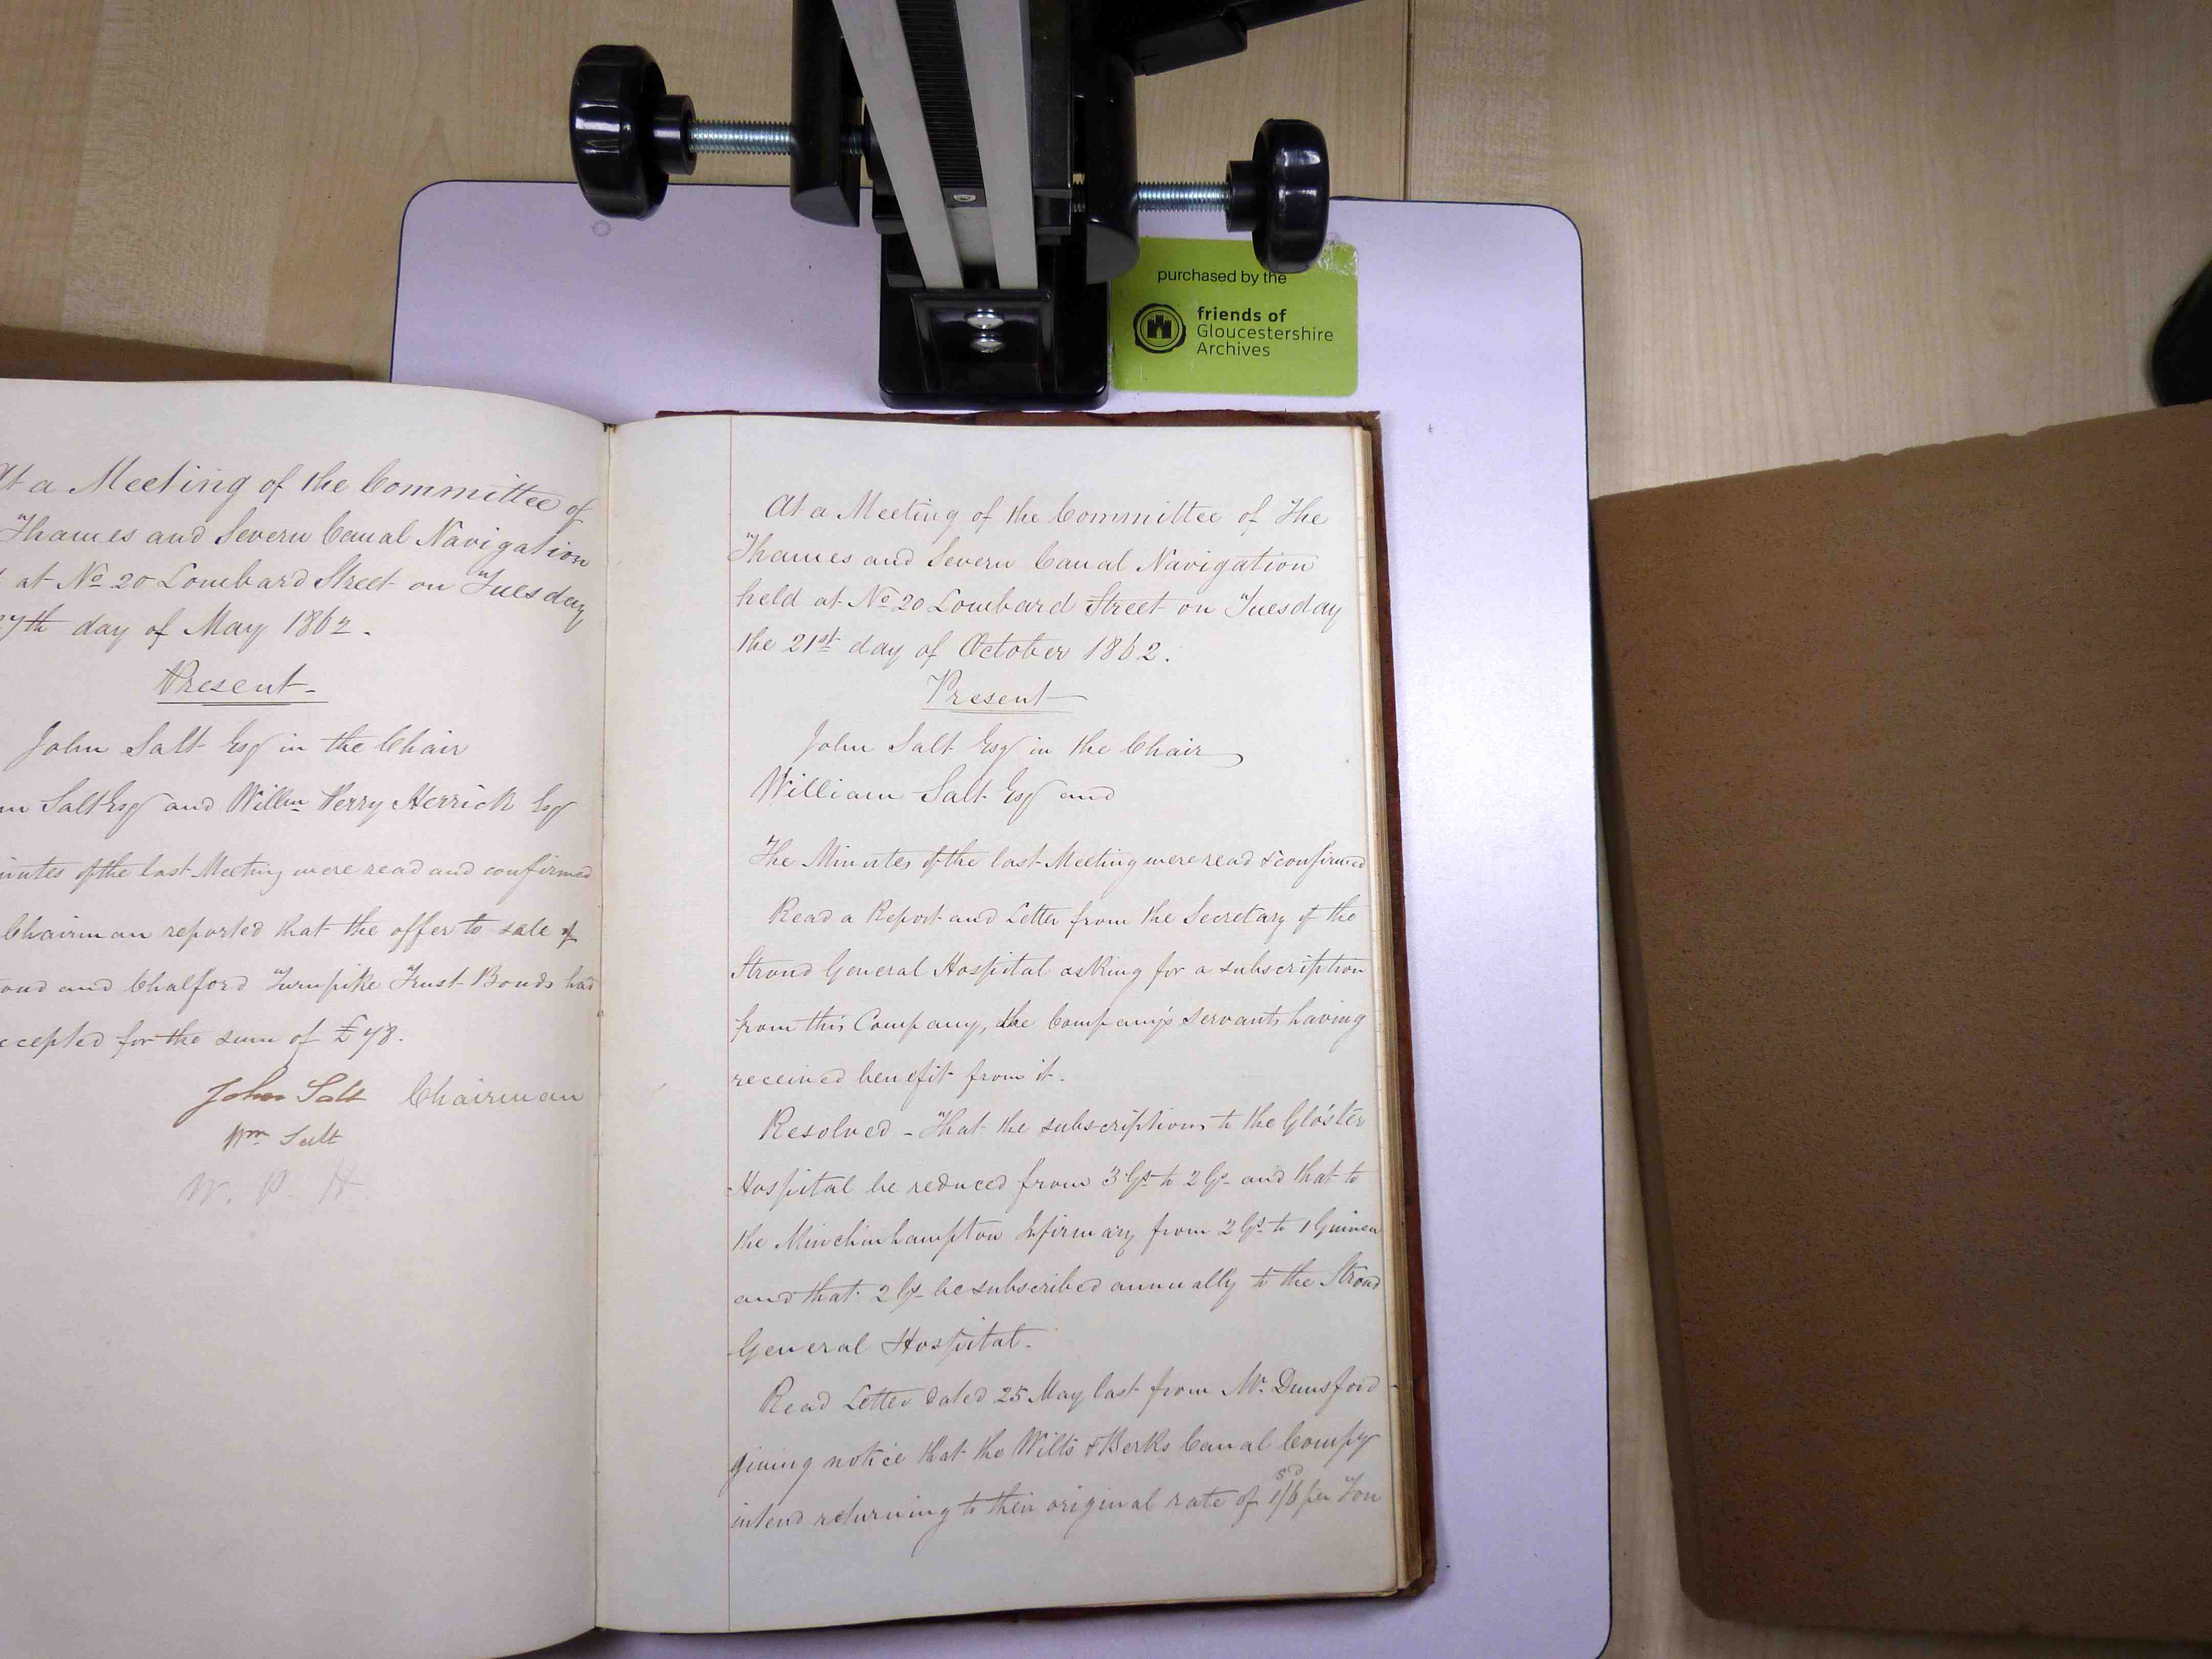 purchased by the
friends of
Gloucestershire
Archives
At a Meeting of the Committee of
Thames and Severn Canal Navigation
at No 20 Lombard Street on Tuesday
27th day of May 1862.
Present
John Salt Esqr in the Chair
Salt Esqr and Willm Perry Herrick Esqr
of the last Meeting were read and confirmed
Chairman reported that the offer to sale of
and Chalford Turnpike Trust Bonds had
accepted for the sum of £78.
John Salt Chairman
Wm Salt
W. P. H.
At a Meeting of the Committee of The
Thames and Severn Canal Navigation
held at No 20 Lombard Street on Tuesday
the 21st day of October 1862.
Present
John Salt Esqr in the Chair
William Salt Esqr and
The Minutes of the last Meeting were read & confirmed
Read a Report and Letter from the Secretary of the
Stroud General Hospital asking for a subscription
from this Company, the Company's servants having
received benefit from it.
Resolved - That the subscriptions to the Glo'ster
Hospital be reduced from 3 Gs to 2 Gs and that to
the Minchinhampton Infirmary from 2 Gs to 1 Guinea
and that 2 Gs be subscribed annually to the Stroud
General Hospital.
Read Letter dated 25 May last from Mr. Dunsford
giving notice that the Wilts & Berks Canal Compy
intend returning to their original rate of 1s/6d per Ton